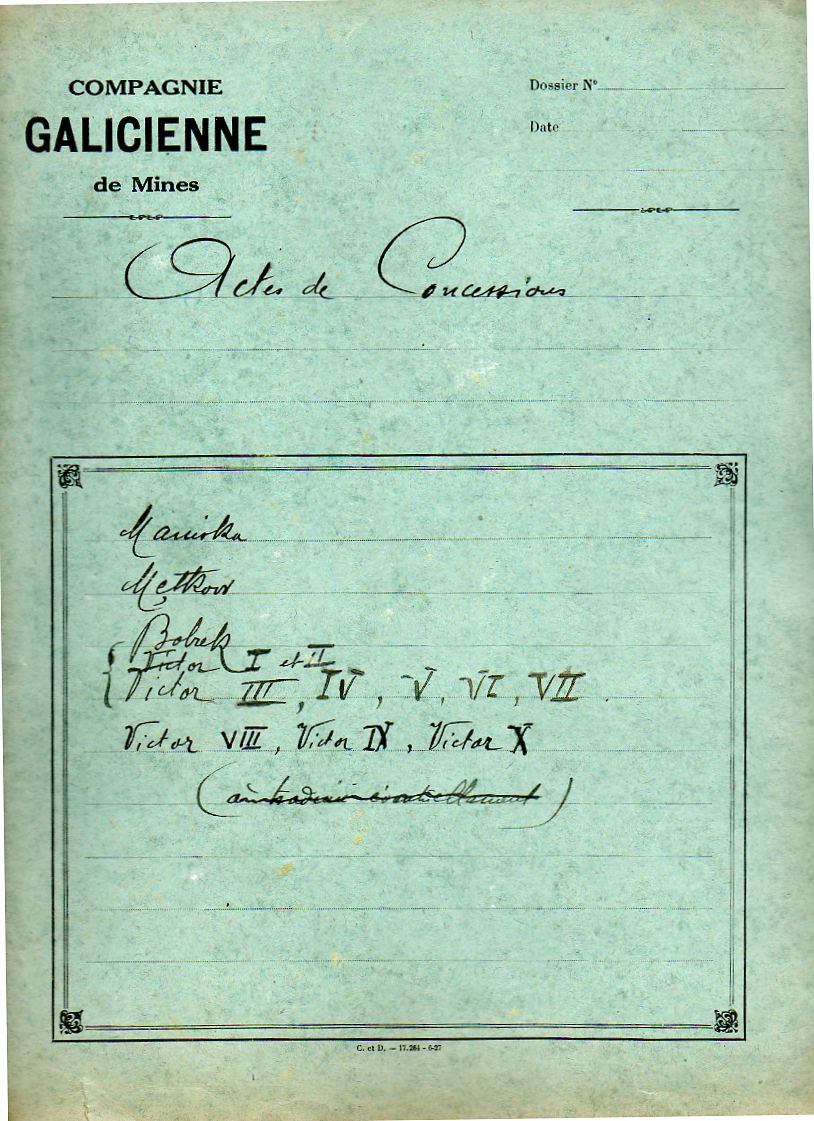 COMPAGNIE
GALICIENNE
de Mines
Dossier N°
Date
Actes de Concessions
Metkow
Bobrek
Victor I et II
Victor III, IV, V, VI, VII.
Victor VIII, Victor IX, Victor X
(à traduire éventuellement)
C. et D. — 17.264 - 6-27